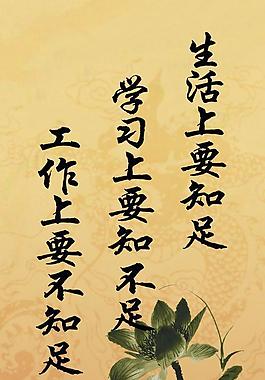 生活上要知足
学习上要知不足
工作上要不知足